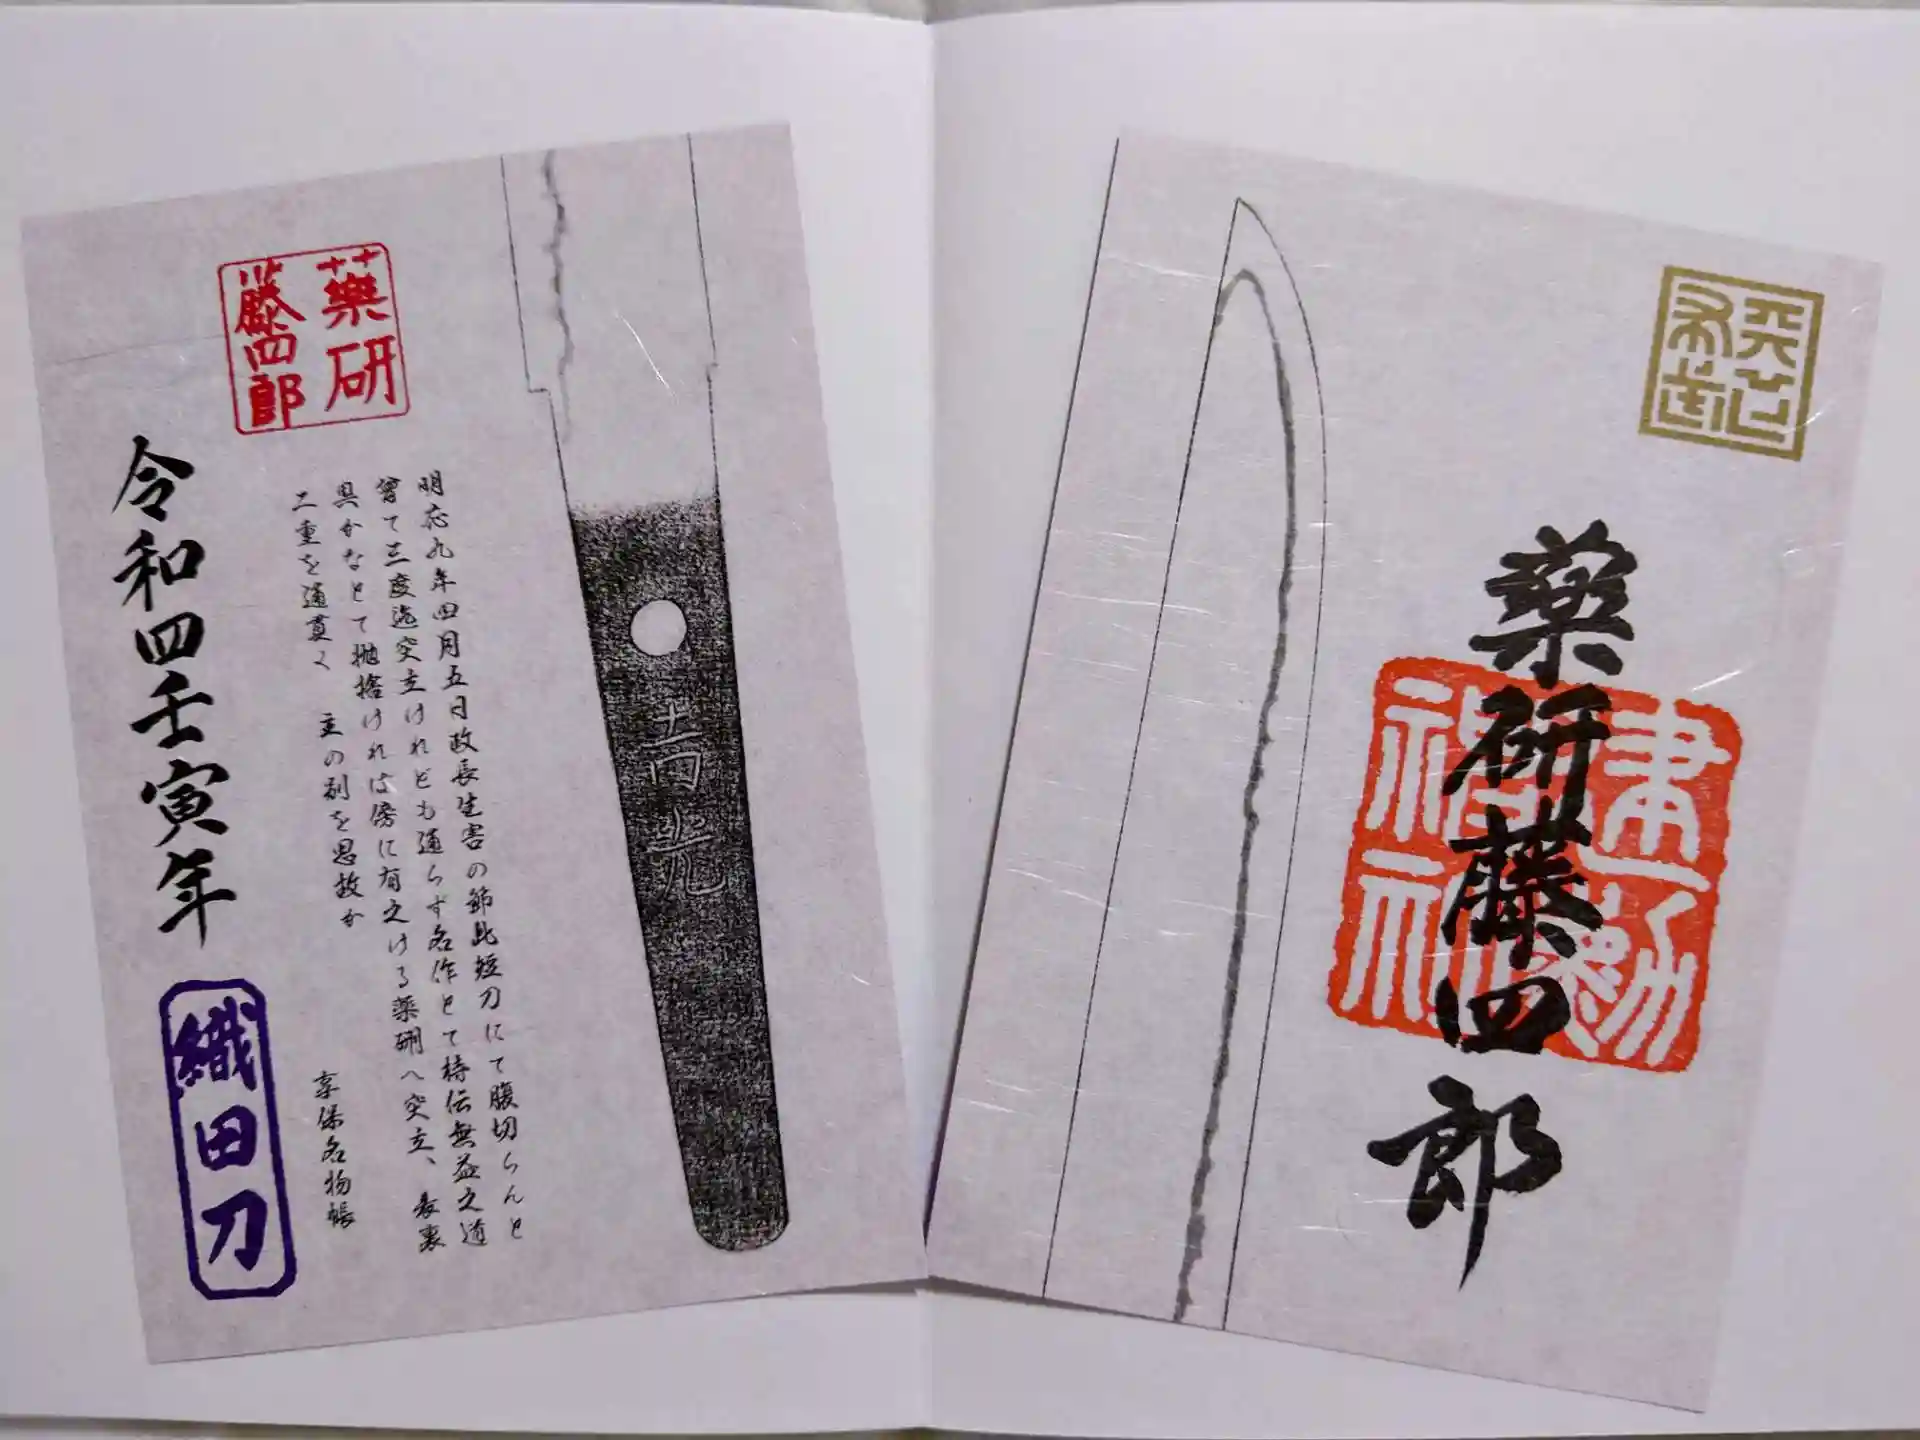 天下布武
薬研藤四郎
建勲神社
吉光
明応九年四月五日政長生害の節此短刀にて腹切らんと
曾て三度迄突立けれども通らず名作とて持伝無益之道
具かなとて抛捨けれは傍に有之ける薬研へ突立、表裏
二重を通貫く 主の別を思故か
享保名物帳
薬研
藤四郎
令和四壬寅年
織田刀